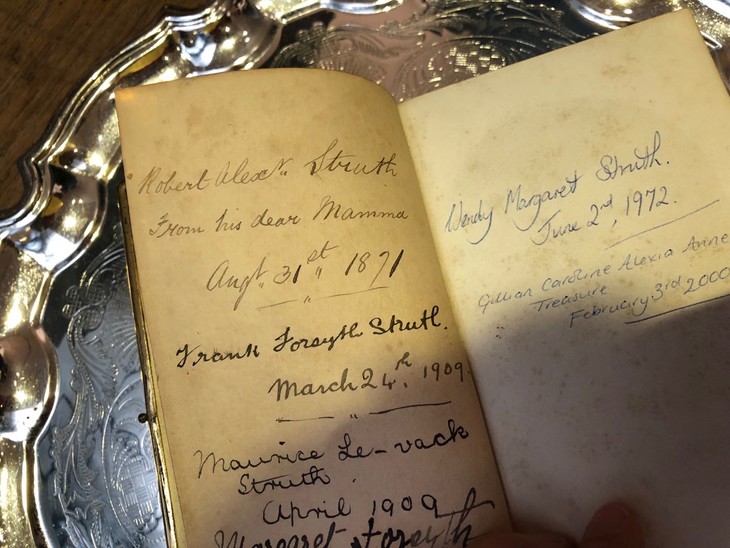 Robert Alexr. Struth
From his dear Mamma
Augt. 31st 1871
Frank Forsyth Struth.
March 24th, 1909.
Maurice Le-vack
Struth.
April 1909
Margaret Forsyth
Wendy Margaret Struth.
June 2nd, 1972.
Gillian Caroline Alexia Anne
Treasure
February 3rd 2000